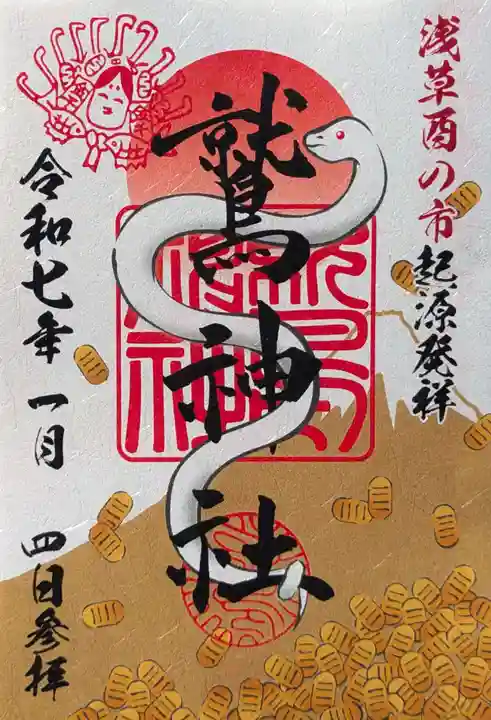 浅草酉の市
起源発祥
鷲神社
令和七年一月四日参拝